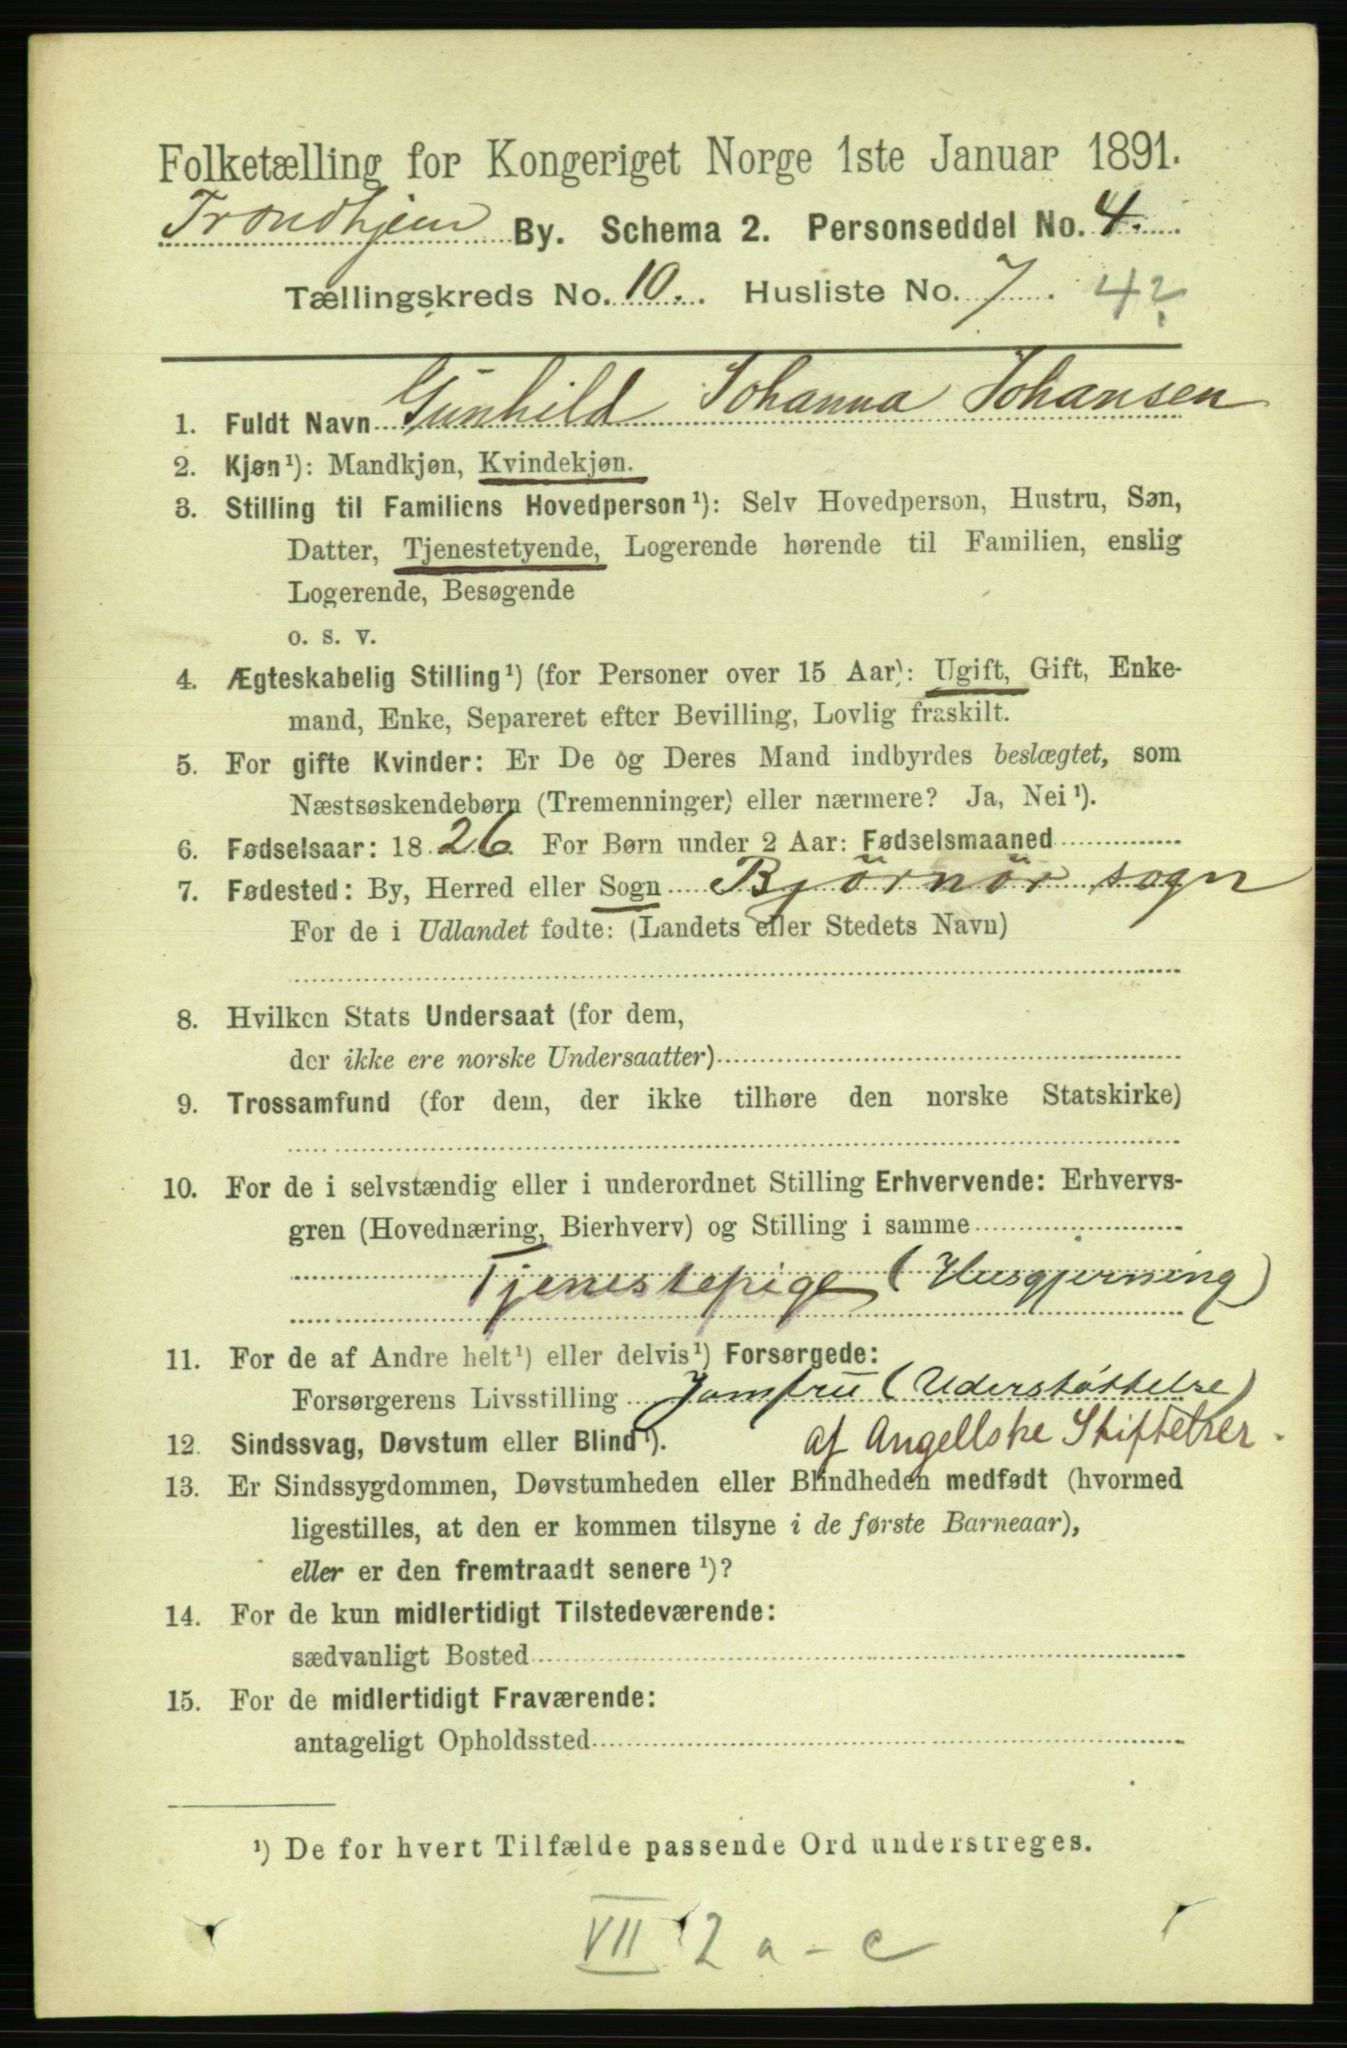 Folketælling for Kongeriget Norge 1ste Januar 1891.
Trondhjem By. Schema 2. Personseddel No. 4.
Tællingskreds No. 10. Husliste No. 7. 42
1. Fuldt Navn Gunhild Johanna Johansen
2. Kjøn¹): Mandkjøn, Kvindekjøn.
3. Stilling til Familiens Hovedperson¹): Selv Hovedperson, Hustru, Søn,
Datter, Tjenestetyende, Logerende hørende til Familien, enslig
Logerende, Besøgende
o. s. v.
4. Ægteskabelig Stilling¹) (for Personer over 15 Aar): Ugift, Gift, Enke-
mand, Enke, Separeret efter Bevilling, Lovlig fraskilt.
5. For gifte Kvinder: Er De og Deres Mand indbyrdes beslægtet, som
Næstsøskendebørn (Tremenninger) eller nærmere? Ja, Nei¹).
6. Fødselsaar: 1826. For Børn under 2 Aar: Fødselsmaaned
7. Fødested: By, Herred eller Sogn Bjørnør sogn
For de i Udlandet fødte: (Landets eller Stedets Navn)
8. Hvilken Stats Undersaat (for dem,
der ikke ere norske Undersaatter)
9. Trossamfund (for dem, der ikke tilhøre den norske Statskirke)
10. For de i selvstændig eller i underordnet Stilling Erhvervende: Erhvervs-
gren (Hovednæring, Bierhverv) og Stilling i samme
Tjenestepige (Husgjerning)
11. For de af Andre helt¹) eller delvis¹) Forsørgede:
Forsørgerens Livsstilling Jomfru (Uderstøttelse)
af Angellske Stiftelser.
12. Sindssvag, Døvstum eller Blind¹).
13. Er Sindssygdommen, Døvstumheden eller Blindheden medfødt (hvormed
ligestilles, at den er kommen tilsyne i de første Barneaar),
eller er den fremtraadt senere¹)?
14. For de kun midlertidigt Tilstedeværende:
sædvanligt Bosted
15. For de midlertidigt Fraværende:
antageligt Opholdssted
¹) De for hvert Tilfælde passende Ord understreges.
VII 2 a - c